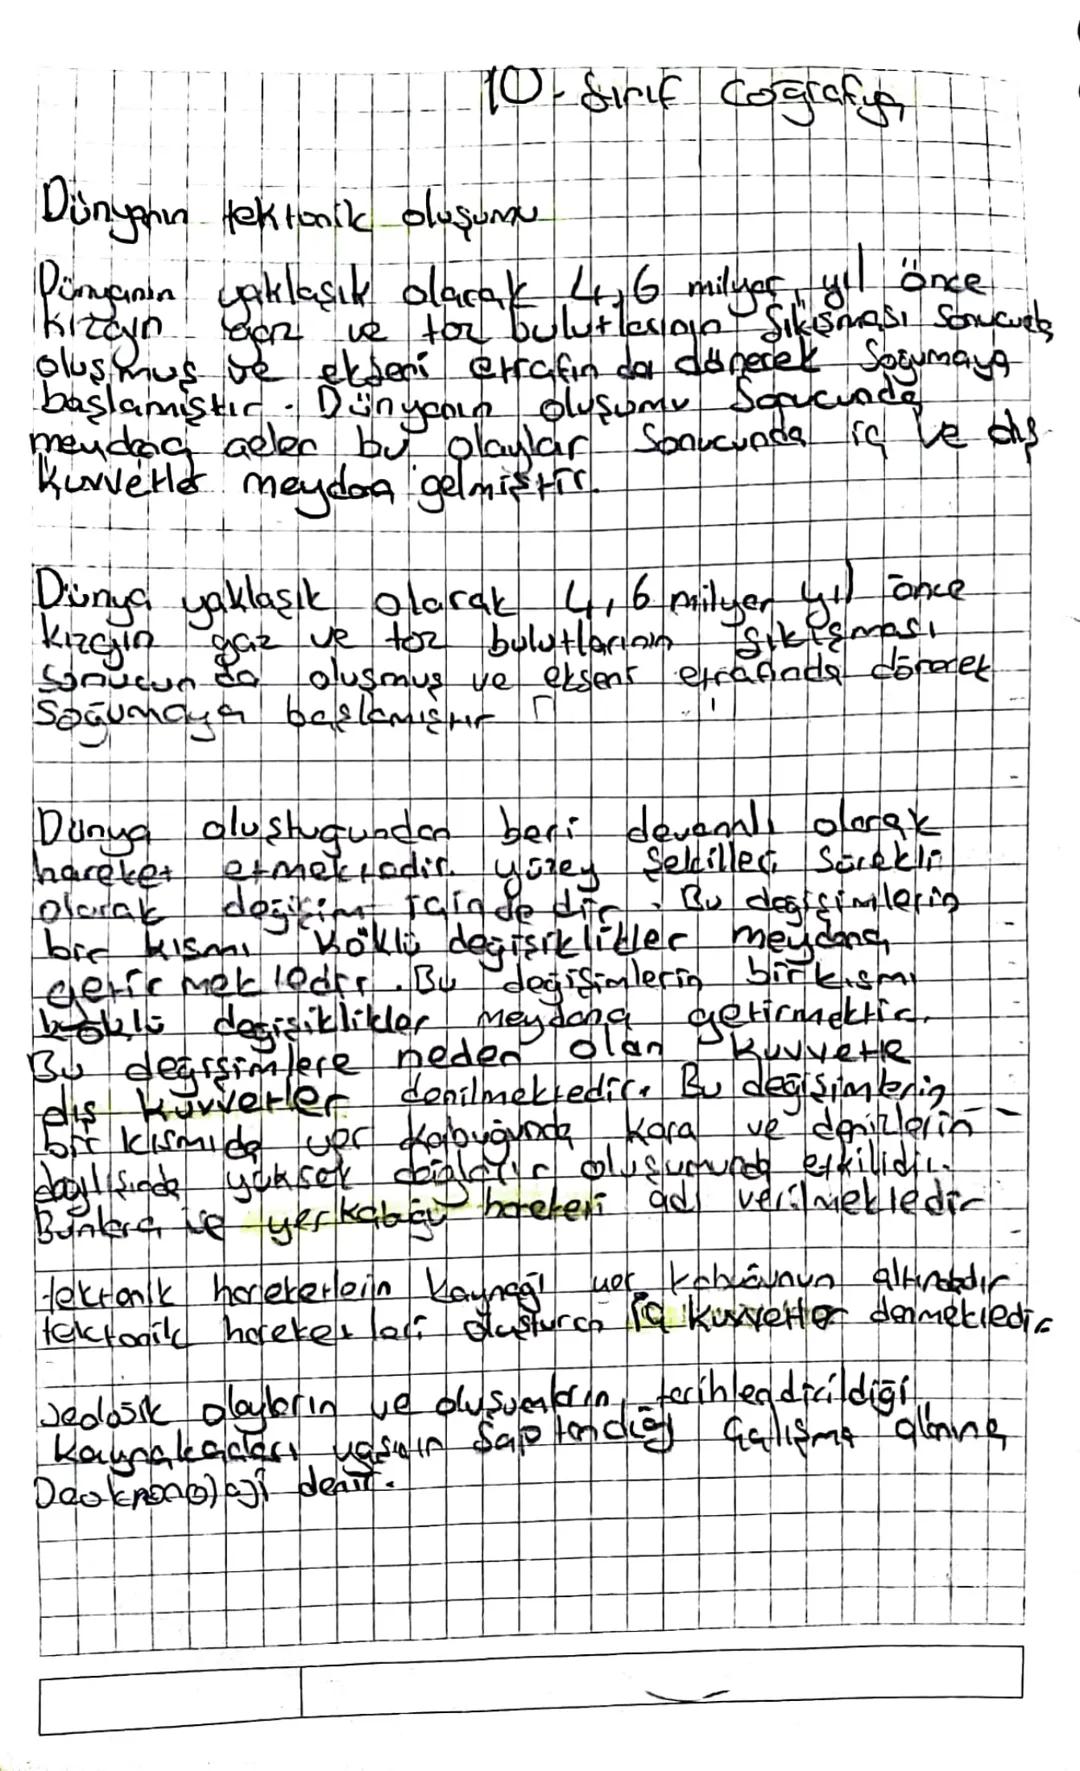 10. Sınıf Coğrafya
Dünyanın tektonik oluşumu
Dünyanın yaklaşık olarak 4,6 milyar yıl önce
kızgın gaz ve toz bulutlarının sıkışması sonucunda
oluşmuş ve ekseni etrafın da dönerek soğumaya
başlamıştır. Dünyanın oluşumu sonucunda
meydana gelen bu olaylar sonucunda iç ve dış
kuvvetler meydana gelmiştir.
Dünya yaklaşık olarak 4,6 milyar yıl önce
kızgın gaz ve toz bulutlarının sıkışması
sonucun da oluşmuş ve ekseni etrafında dönerek
soğumaya başlamıştır
Dünya oluştuğundan beri devamlı olarak
hareket etmektedir. yüzey şekilleri sürekli
olarak değişim içinde dir. Bu değişimlerin
bir kısmı köklü değişiklikler meydana
getir mektedir. Bu değişimlerin bir kısmı
köklü değişiklikler meydana getirmektir.
Bu değişimlere neden olan kuvvetle
dış kuvverler denilmektedir. Bu değişimlerin
bir kısmıda yer kabuğunda kara ve denizlerin
dağılışında yüksek dağların oluşumunda etkilidir.
Bunlara ise yer kabuğu hareketi adı verilmektedir
tektonik hareketlerin kaynağı yer kabuğunun altındadır
tektonik hareketleri oluşturan iç kuvvetler denmektedir
Jeolojik olayların ve oluşumların tarihlendirildiği
kaynakaçları yaşının saptandığı çalışma alanına
denir.